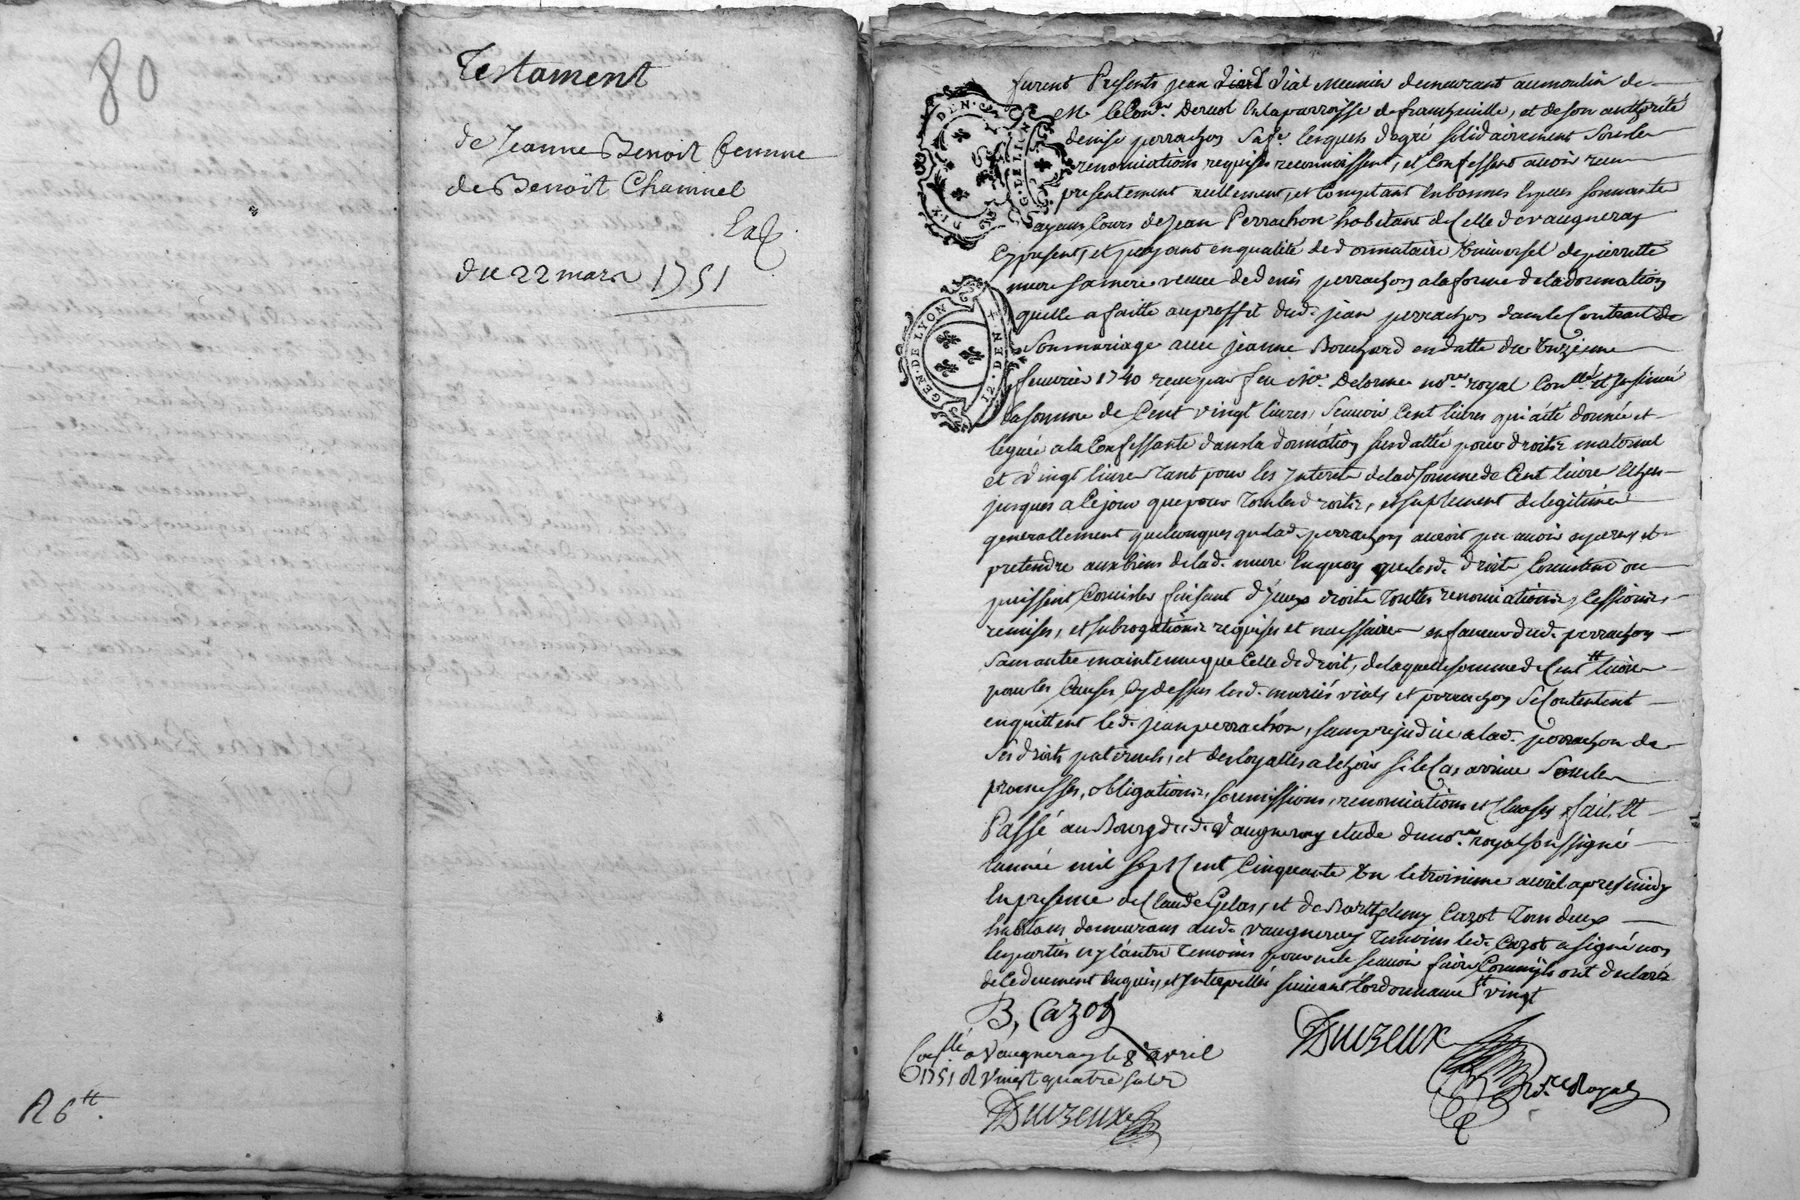 80
Testament
de Jeanne Benoit femme
de Benoit Chaminel
du 22 mars 1751
R 6tt.
furent Presents jean Vial meunier demeurant au moulin de
en la parroisse de franchuille, et de son authorité
denise perrachon sa fe. lesquels de gré solidairement sous les
renonciations requises reconnoissent, et Confessent avoir receu
presentement reellement, et Comptant en bonnes especes sonnantes
ayans Cours de jean Perrachon habitant de Celle de vaugneray
Cy present, et payant en qualité de donnataire Universel de pierrette
mure sa mere veuve de denis perrachon a la forme de la donnation
quelle a faitte au proffit dud. jean perrachon dans le Contract de
Son mariage avec jeanne Bouchard en datte du Unzieme
feuvrier 1740 receu par feu Me. Delorme nore. royal Conllé. et Insinué
La somme de Cent vingt livres, Scauoir Cent livres qui a été donnée et
leguée a la Confessante dans la donnation susdattée pour droits maternel
et vingt livres tant pour les Interets de lad. somme de Cent livres
jusques a Ce jour que pour tous les droits, et suplement de legitime
generallement quelconques que lad. perrachon auroit pu avoir esperer, et
pretendre aux biens de lad. mure En quoy que lesd. droits Consistent ou
puissent Consister faisant d'Iceux droits touttes renonciations, Cessions,
remises, et subrogations requises et necessaires en faveur dud. perrachon
Sans autre maintenue que Celle de droit, de laquelle somme de Cent vingt livres
pour les Causes Cy dessus lesd. mariés vial et perrachon se Contentent
en quittent led. jean perrachon, sans prejudice a lad. perrachon de
Ses droits paternels, et des loyalles alechoir si le Cas arrive Sous les
promesses, obligations, soumissions, renonciations et Clauses, fait, et
Passé au Bourg dud. Vaugneray etude du nore. royal soussigné
L'année mil sept Cent Cinquante Un le troisieme avril apres midy
En presence de Claude Gelas, et de Barthelemy Cazot tous deux
habitans demeurans aud. vaugneray temoins led. Cazot a signé non
les parties ny l'autre temoins pour ne le scauoir faire Comme ils ont declaré
de Ce deument Enquis, et Interpellés suivant l'ordonnance vingt
B, Cazot
Duvzeux
Conllé a Vaugneray le 8e avril
1751 R Vingt quatre sols
Duvzeux
nore. Royal
GEN. DE LYON
12. DEN
G. DE LION